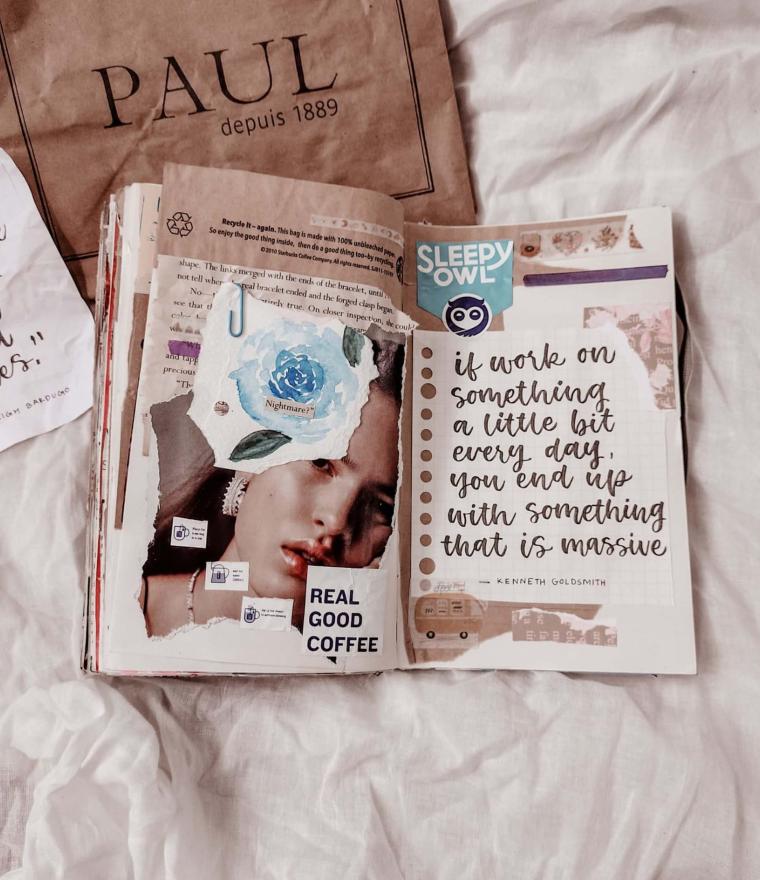 PAUL
depuis 1889
es."
IGH BARDUGO
Recycle It – again. This bag is made with 100% unbleached paper.
So enjoy the good thing inside, then do a good thing too–by recycling
©2010 Starbucks Coffee Company. All rights reserved.
shape. The links merged with the ends of the bracelet, until
not tell where real bracelet ended and the forged clasp began.
No— irely true. On closer inspection, she could
see that
and
precious
"Th
Nightmare?"
REAL
GOOD
COFFEE
SLEEPY
OWL
if work on
something
a little bit
every day,
you end up
with something
that is massive
— KENNETH GOLDSMITH